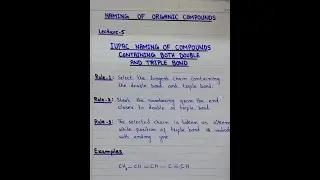 NAMING OF ORGANIC COMPOUNDS
Lecture-5
IUPAC NAMING OF COMPOUNDS
CONTAINING BOTH DOUBLE
AND TRIPLE BOND
Rule-1: Select the longest chain containing
the double bond and triple bond.
Rule-2: Start the numbering from the end
closer to double or triple bond.
Rule-3: The selected chain is taken as
while position of triple bond is
with ending yne
Examples